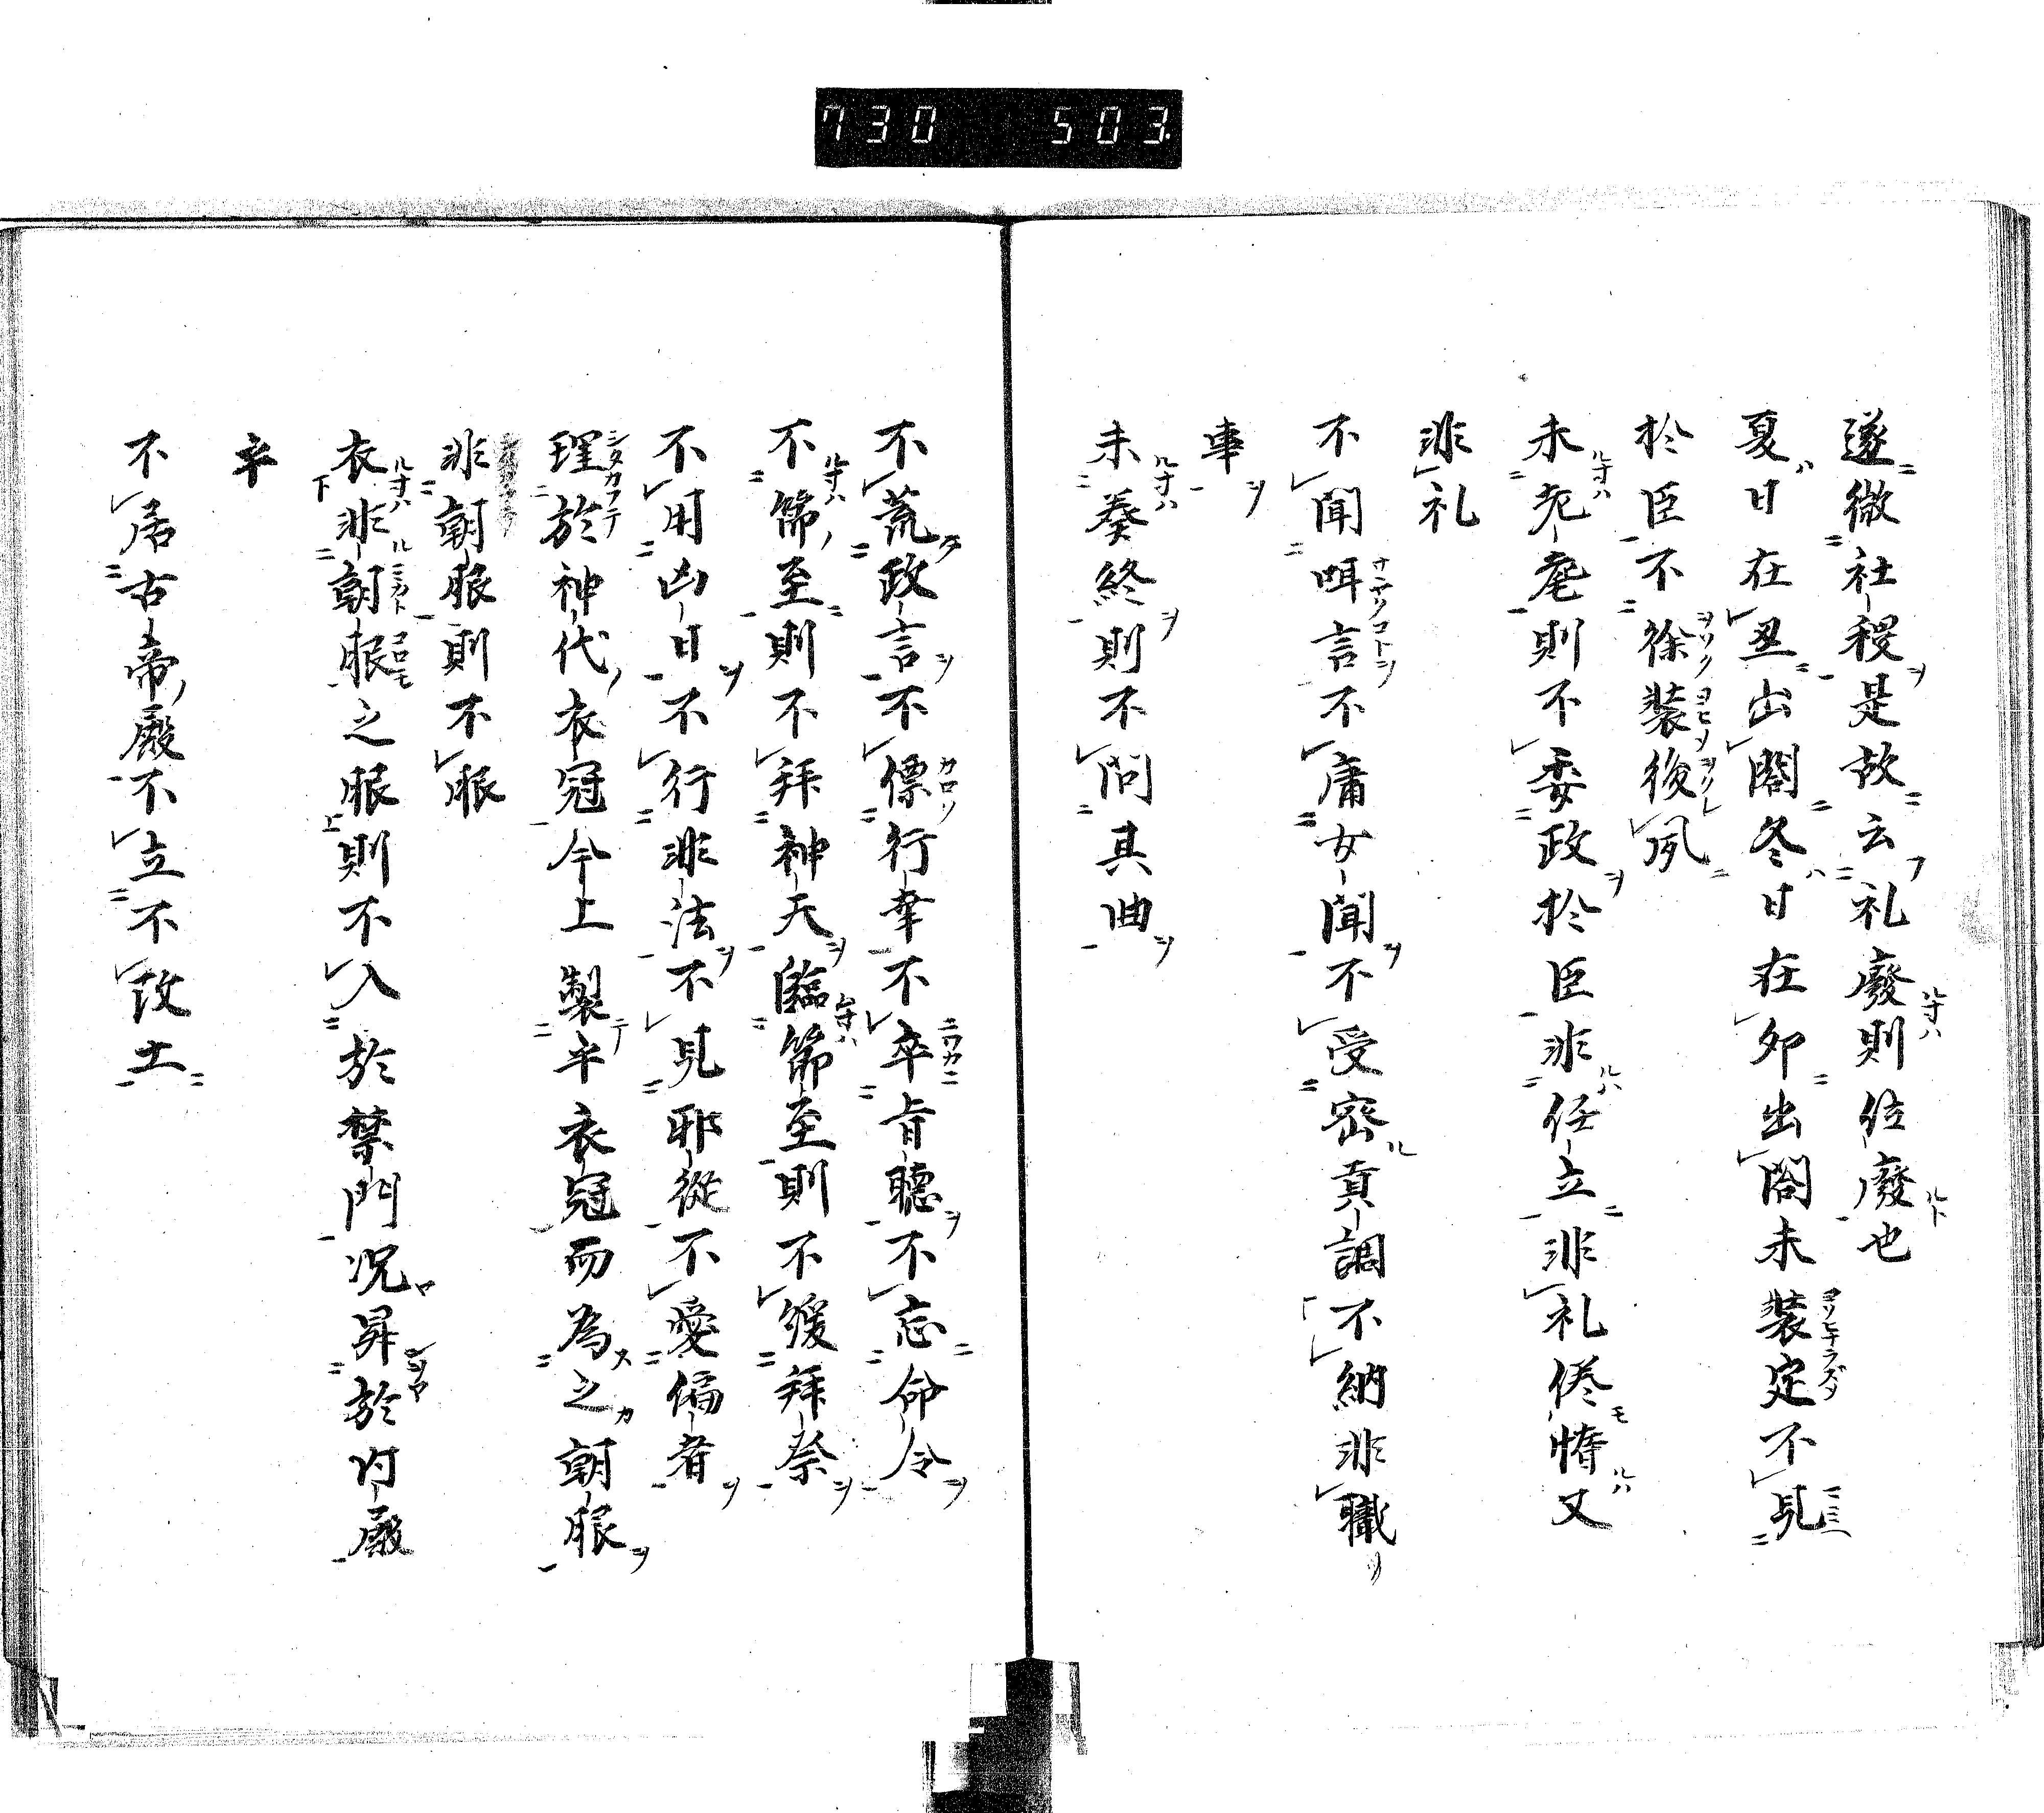 730 503
遂微社稷是故云礼廢則位廢也
夏日在丑出閣冬日在卯出閤未装定不見
於臣不徐装後夙
未耄則不委政於臣非任立非礼倦惰又
非礼
不聞咡言不庸女聞不受密貢調不納非職
事
未奏終則不問其曲
不荒政言不僄行幸不卒肯聽不忘命令
不節至則不拜神天臨節至則不緩拜祭
不用凶日不行非法不見邪従不愛偏者
理於神代衣冠今上製平衣冠而為之朝服
非朝服則不服
衣非朝服之服則不入於禁門況昇於内殿
平
不居古帝殿不立不改土